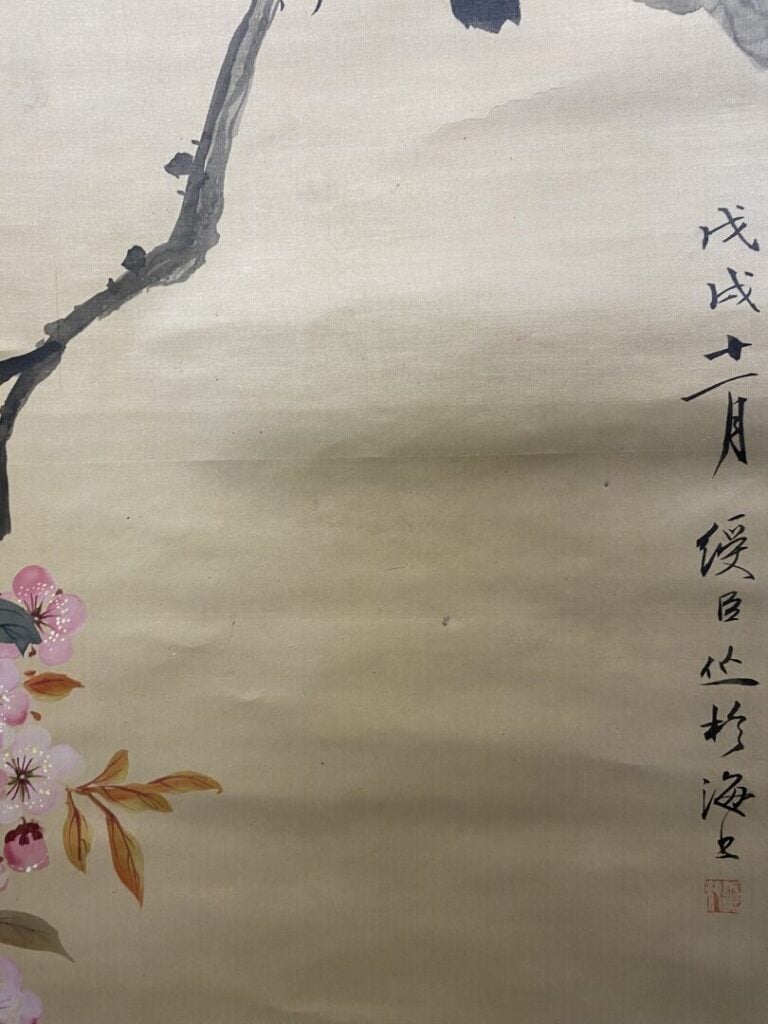 戊戌十一月 綬臣作於海上